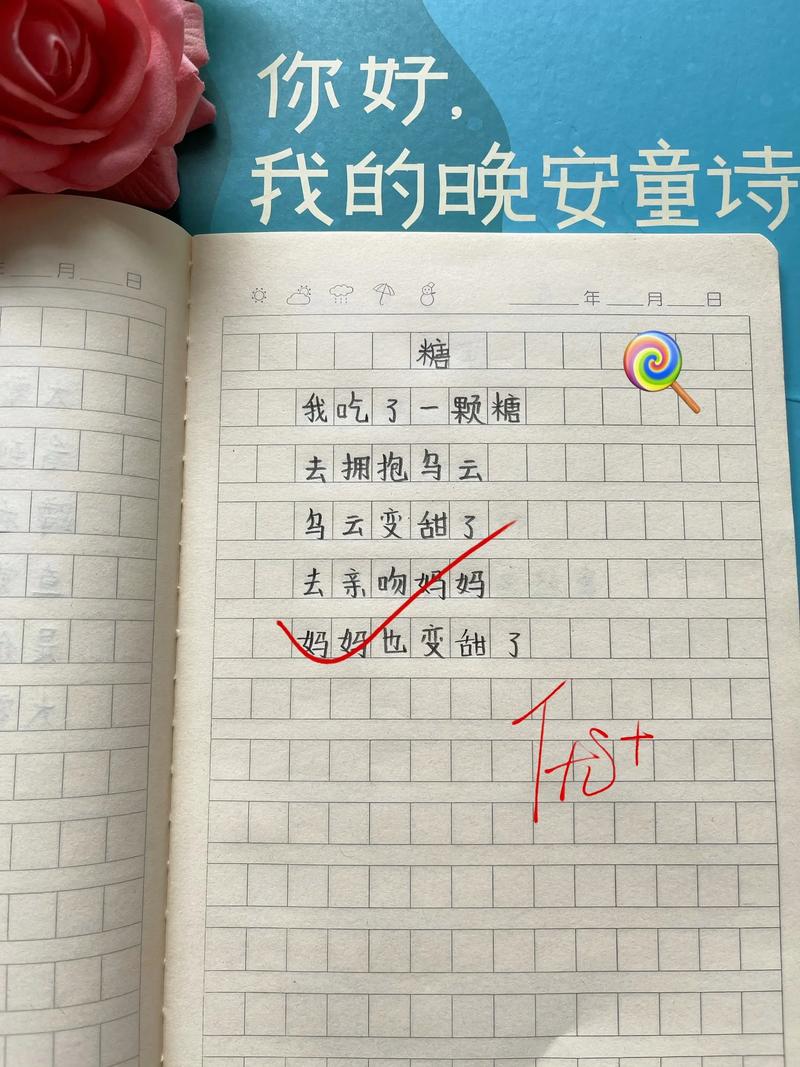 你好,
我的晚安童诗
月 日
年 月 日
糖
我吃了一颗糖
去拥抱乌云
乌云变甜了
去亲吻妈妈
妈妈也变甜了